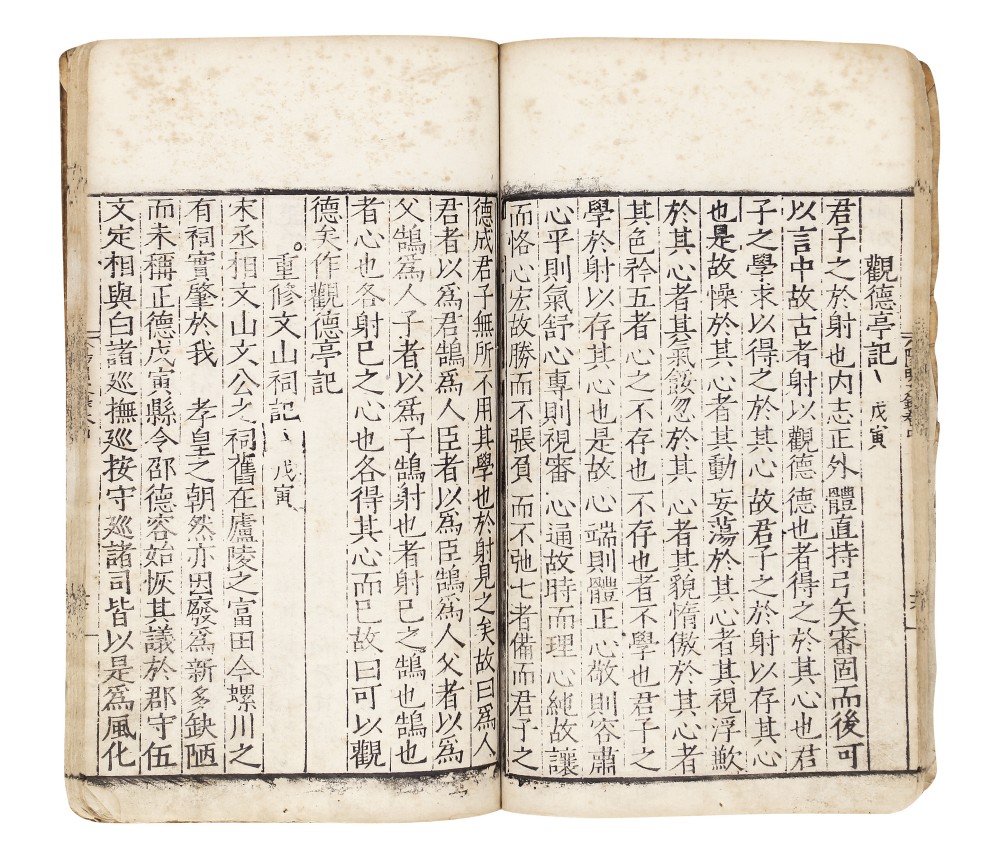 觀德亭記、戊寅
君子之於射也內志正外體直持弓矢審固而後可
以言中故古者射以觀德德也者得之於其心也君
子之學求以得之於其心故君子之於射以存其心
也是故懆於其心者其動妄蕩於其心者其視浮歉
於其心者其氣餒忽於其心者其貌惰傲於其心者
其色矜五者心之不存也不存也者不學也君子之
學於射以存其心也是故心端則體正心敬則容肅
心平則氣舒心專則視審心通故時而理心純故讓
而恪心宏故勝而不張負而不弛七者備而君子之
德成君子無所不用其學也於射見之矣故曰爲人
君者以爲君鵠爲人臣者以爲臣鵠爲人父者以爲
父鵠爲人子者以爲子鵠射也者射已之鵠也鵠也
者心也各射已之心也各得其心而已故曰可以觀
德矣作觀德亭記
。重修文山祠記、戊寅
宋丞相文山文公之祠舊在廬陵之富田今螺川之
有祠實肇於我　孝皇之朝然亦因廢爲新多缺陋
而未稱正德戊寅縣令邵德容始恢其議於郡守伍
文定相與白諸巡撫巡按守巡諸司皆以是爲風化